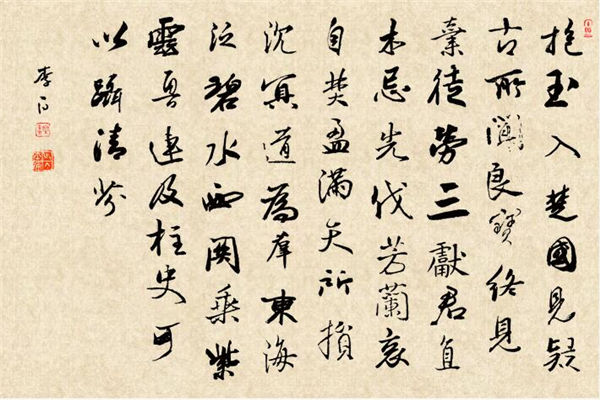 抱玉入楚國見疑
古所良寶終見
棄徒勞三獻君直
木忌先伐芳蘭哀
自焚盈滿天所損
沈冥道為羣東海
泛碧水西關乘紫
雲魯連及柱史可
以躡清芬
李